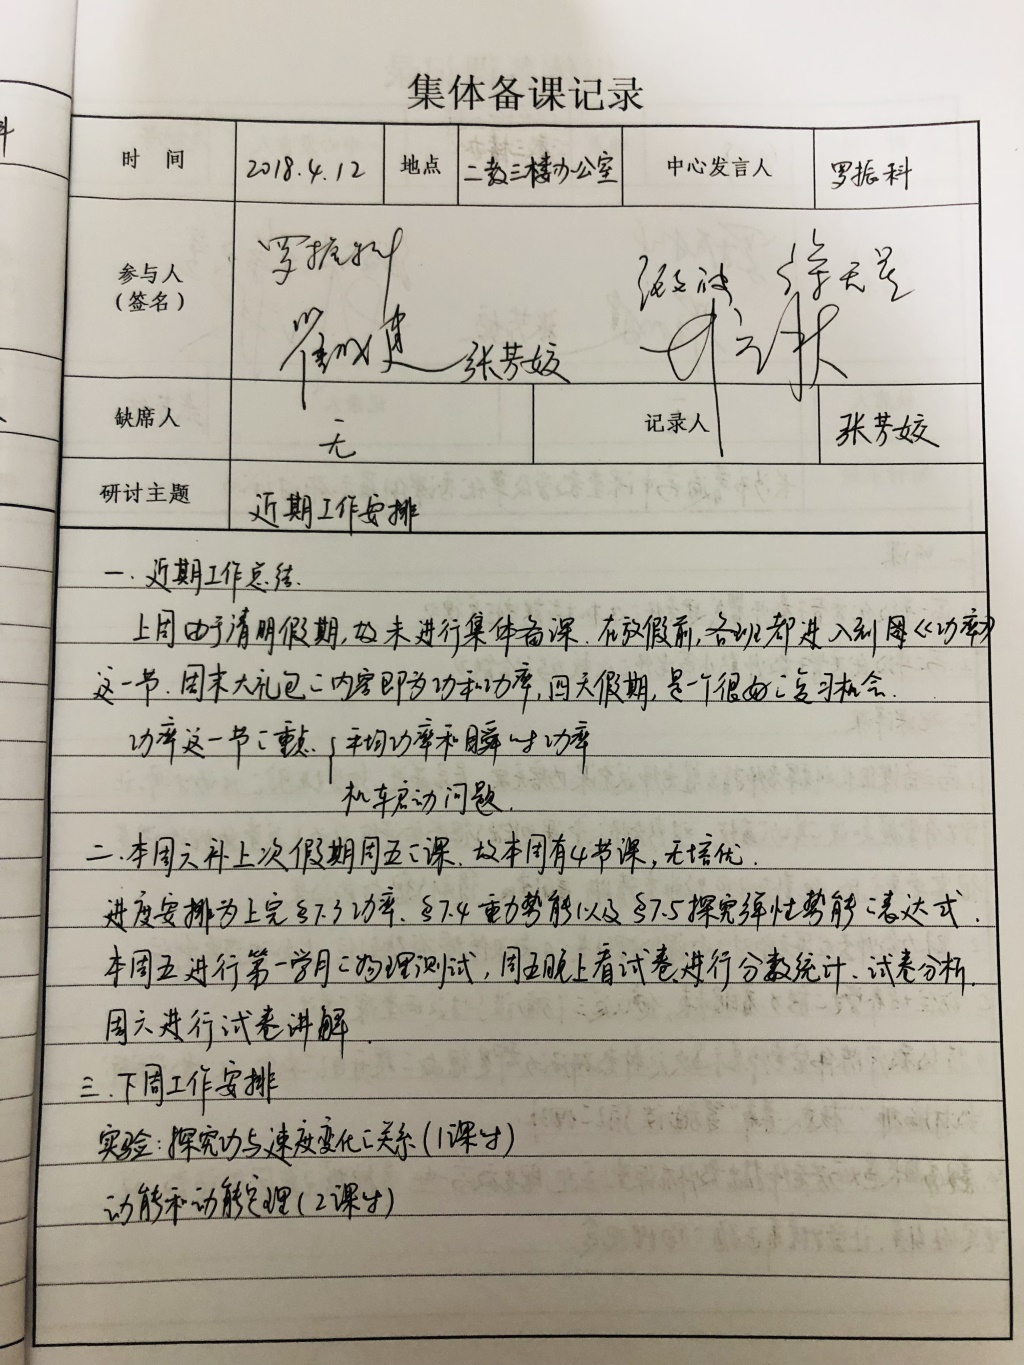 集体备课记录
时 间 2018.4.12 地点 二教三楼办公室 中心发言人 罗振科
参与人
(签名)
罗振科
张芳姣
缺席人 无 记录人 张芳姣
研讨主题 近期工作安排
一.近期工作总结.
上周由于清明假期,故未进行集体备课.在放假前,各班都进入到《功率》
这一节.周末大礼包的内容即为功和功率,四天假期,是一个很好的复习机会.
功率这一节的重点{平均功率和瞬时功率
机车启动问题.
二.本周六补上次假期周五的课.故本周有4节课,无培优.
进度安排为上完§7.3功率、§7.4重力势能以及§7.5探究弹性势能的表达式.
本周五进行第一学月的物理测试,周五晚上看试卷,进行分数统计、试卷分析.
周六进行试卷讲解.
三.下周工作安排
实验:探究功与速度变化的关系(1课时)
动能和动能定理(2课时)